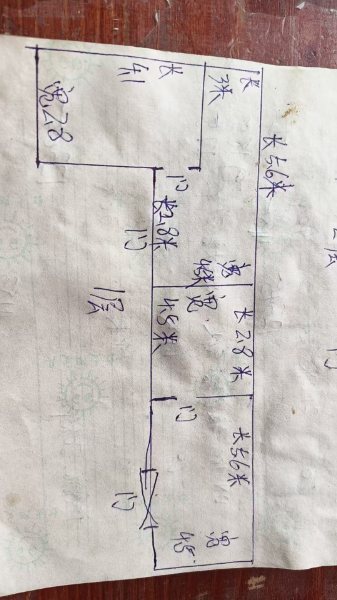 长
3米
长
4.1
宽2.8
长5.6米
门
长2.8米
门
宽
4米
宽
4.5米
长2.8米
1层
门
长5.6米
门
宽
4.5
门